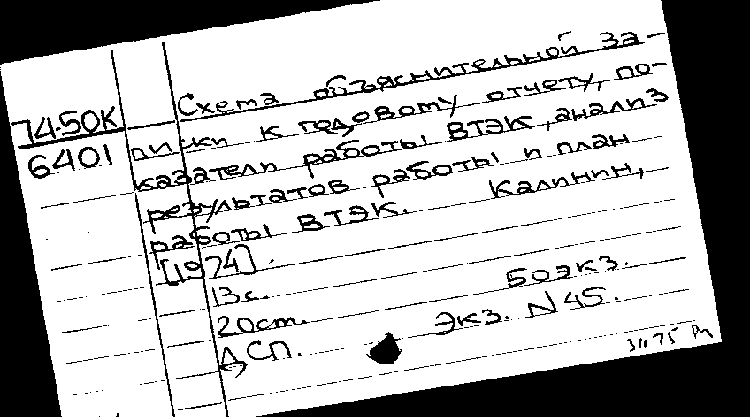 74-50К
6401
Схема объяснительной за-
писки к годовому отчету, по-
казатели работы ВТЭК, анализ
результатов работы и план
работы ВТЭК. Калинин,
[1974].
13с. 50экз.
20ст. Экз. N 45.
ДСП.